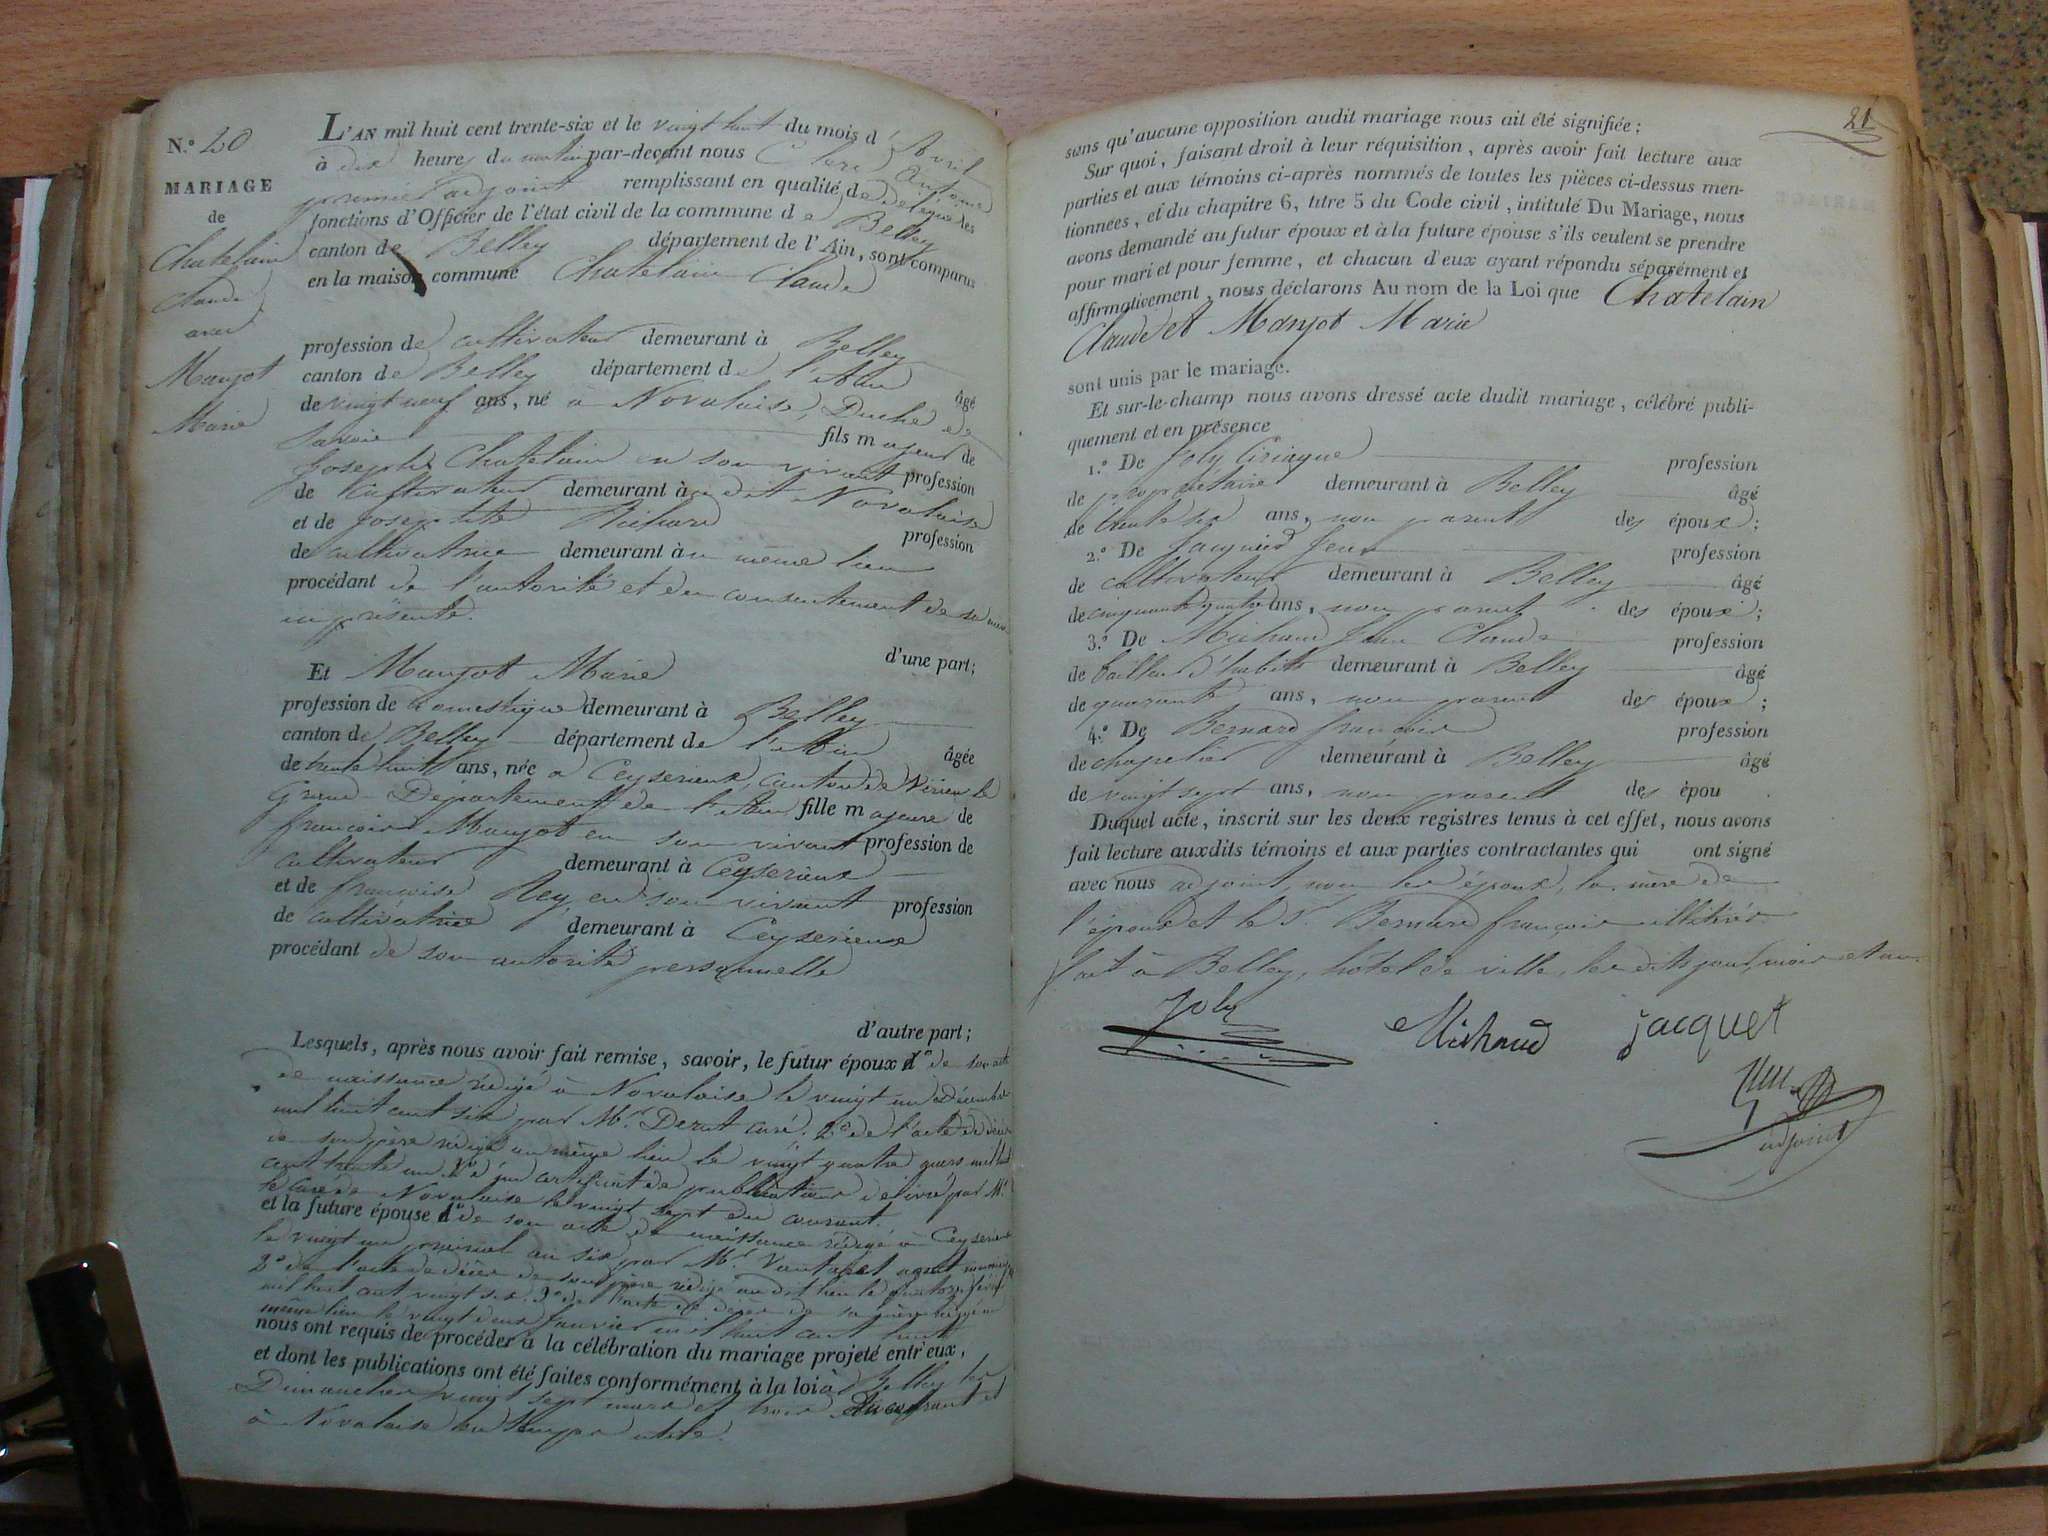 N.° 20
MARIAGE
de
Chatelain
Claude
avec
Manjot
Marie
L'AN mil huit cent trente-six et le vingt huit du mois d'Avril
à dix heures du matin par-devant nous Clerc Antoine
premier adjoint remplissant en qualité de délégué les
fonctions d'Officier de l'état civil de la commune de Belley
canton de Belley département de l'Ain, sont comparus
en la maison commune Chatelain Claude
profession de cultivateur demeurant à Belley
canton de Belley département de l'Ain âgé
de vingt neuf ans, né à Novalaise, Duché de
Savoie fils majeur de
Joseph Chatelain en son vivant profession
de cultivateur demeurant à dit Novalaise
et de Josephte Richard profession
de cultivatrice demeurant au même lieu
procédant de l'autorité et du consentement de sa mère
ici présente.
d'une part;
Et Manjot Marie
profession de domestique demeurant à Belley
canton de Belley département de l'Ain âgée
de trente huit ans, née à Ceyserieux, canton de Virieu le
Grand Département de l'Ain, fille majeure de
françois Manjot en son vivant profession de
cultivateur demeurant à Ceyserieux
et de françoise Rey, en son vivant profession
de cultivatrice demeurant à Ceyserieux
procédant de son autorité personnelle
d'autre part;
Lesquels, après nous avoir fait remise, savoir, le futur époux 1° de son acte
de naissance rédigé à Novalaise le vingt un décembre
mil huit cent six par Mr. curé. 2° de l'acte de décès
de son père rédigé au même lieu le vingt quatre mars mil huit
cent trente un certificat de publications délivré par Mr.
le curé de Novalaise le vingt sept du courant.
et la future épouse 1° de son acte de naissance rédigé à Ceyserieux
le vingt un an six par Mr. agent municipal
2° de l'acte de décès de son père rédigé au dit lieu le quatorze février
mil huit cent vingt six. 3° de l'acte de décès de sa mère rédigé au
même lieu le vingt deux Janvier mil huit cent huit
nous ont requis de procéder à la célébration du mariage projeté entr'eux,
et dont les publications ont été faites conformément à la loi à Belley les
Dimanches vingt sept mars et trois du courant et
à Novalaise en temps utile.
21
sans qu'aucune opposition audit mariage nous ait été signifiée;
Sur quoi, faisant droit à leur réquisition, après avoir fait lecture aux
parties et aux témoins ci-après nommés de toutes les pièces ci-dessus men-
tionnées, et du chapitre 6, titre 5 du Code civil, intitulé Du Mariage, nous
avons demandé au futur époux et à la future épouse s'ils veulent se prendre
pour mari et pour femme, et chacun d'eux ayant répondu séparément et
affirmativement, nous déclarons Au nom de la Loi que Chatelain
Claude et Manjot Marie
sont unis par le mariage.
Et sur-le-champ nous avons dressé acte dudit mariage, célébré publi-
quement et en présence
1.° De Joly Ciriaque profession
de propriétaire demeurant à Belley âgé
de trente six ans, non parent des époux;
2.° De Jacquet Jean profession
de cultivateur demeurant à Belley âgé
de cinquante quatre ans, non parent des époux;
3.° De Michaud Jean Claude profession
de tailleur d'habits demeurant à Belley âgé
de quarante ans, non parent des époux;
4.° De Bernard françois profession
de chapelier demeurant à Belley âgé
de vingt sept ans, non parent des épou .
Duquel acte, inscrit sur les deux registres tenus à cet effet, nous avons
fait lecture auxdits témoins et aux parties contractantes qui ont signé
avec nous adjoint, non les époux, la mère de
l'époux et le Sr. Bernard françois illétérés
fait à Belley, hôtel de ville, les dits jour, mois et an.
Joly Michaud jacquet
adjoint